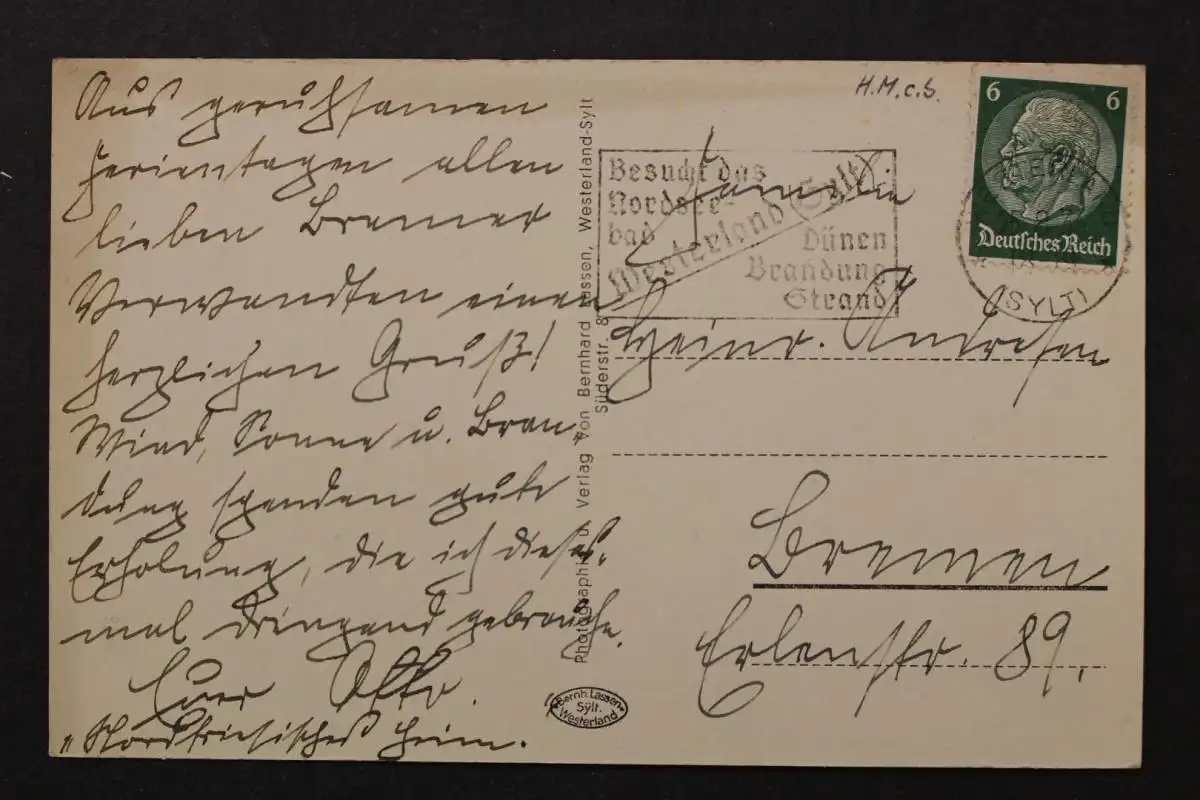 Aus geruhsamen
Ferientagen allen
lieben Bremer
Verwandten einen
herzlichen Gruß!
Wind, Sonne u. Bran-
dung spenden gute
Erholung, die ich dieses-
mal dringend gebrauche.
Euer Otto.
"Nordfriesisches Heim.
Photographie u. Verlag von Bernhard Lassen, Westerland-Sylt
Süderstr. 8
Bernh. Lassen
Sylt.
Westerland
H.M.c.S.
6 6
Deutsches Reich
(SYLT)
Besucht das
Nordsee-
bad
Westerland (Sylt)
Dünen
Brandung
Strand
Familie
Heinr. Andresen
Bremen
Erlenstr. 89.